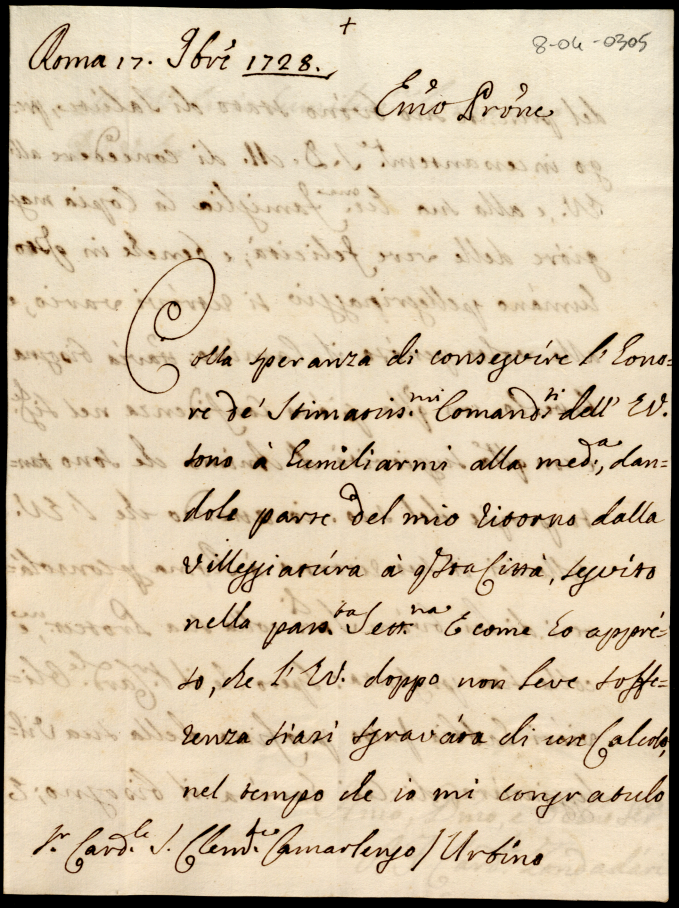 +
8-04-0305
Roma 17. 9bre 1728.
Emo Prone
Colla speranza di conseguire l'hono=
re de' Stimatiss.mi Comand.ti dell' EV.
sono à humiliarmi alla med.a, dan=
dole parte del mio ritorno dalla
villeggiatúra à qsta Città, seguito
nella pass.ta Sett.na E come hò appré=
so, che l' EV. doppo non leve soffe=
renza siasi sgraváta di un Calcolo,
nel tempo che io mi congratulo
Sr. Card.le S. Clem.te Camarlengo / Urbino